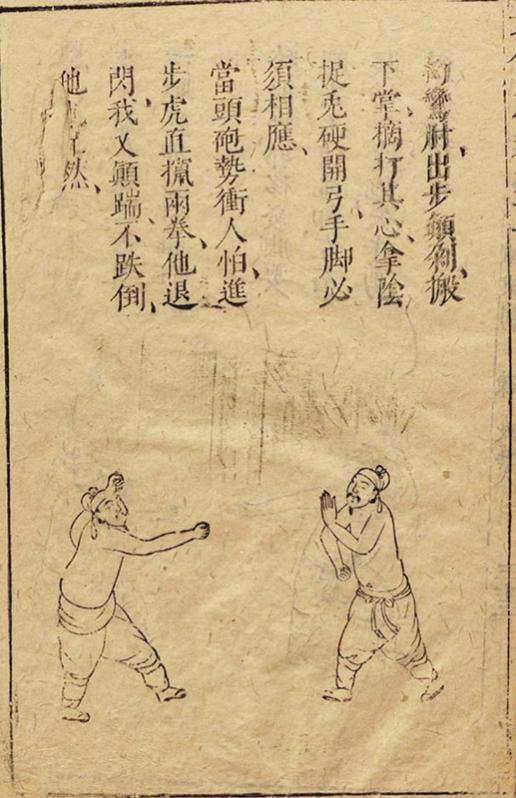 鸞肘、出步顛剁、搬
下掌、摘打其心、拿陰
捉兎硬開弓、手脚必
須相應、
當頭砲勢衝人怕、進
步虎直攛兩拳、他退
閃、我又顛踹、不跌倒、
他也然、